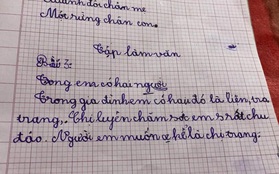 anh đôi chăm mẹ
Mới rừng chăn con.
Tập làm văn
Bài
Trong em có hai người
Trong gia đình em có hau đó là liên, tra
trang,. Chi luyên chăm sót em s rất chu
đáo. Người em muốn ợ hể là chu trang.